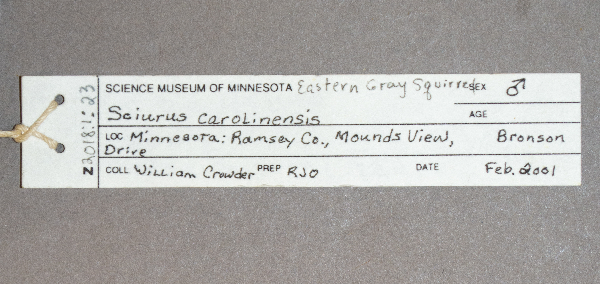 SCIENCE MUSEUM OF MINNESOTA Eastern Gray Squirrel SEX ♂
Sciurus carolinensis AGE
LOC Minnesota: Ramsey Co., Mounds View, Bronson
Drive
COLL William Crowder PREP RJO DATE Feb. 2001
Z2018:1:23